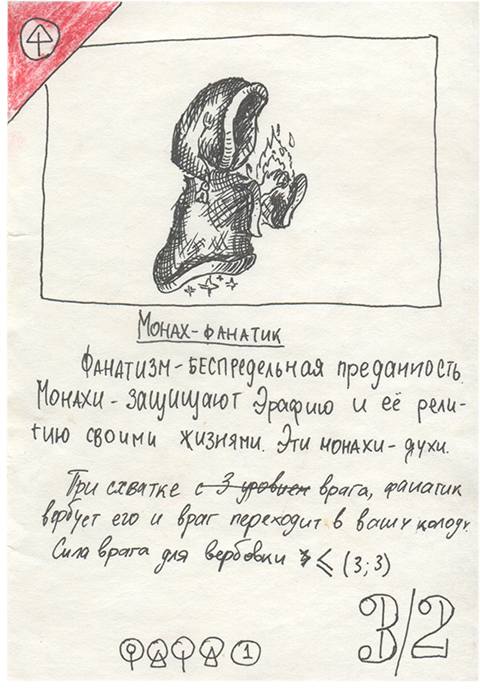 Монах-фанатик
Фанатизм - беспредельная преданность.
Монахи - защищают Эрафию и её рели-
гию своими жизнями. Эти монахи - духи.
При схватке с 3 уровнем врага, фанатик
вербует его и враг переходит в вашу колоду.
Сила врага для вербовки ≤ (3;3)
3/2
1